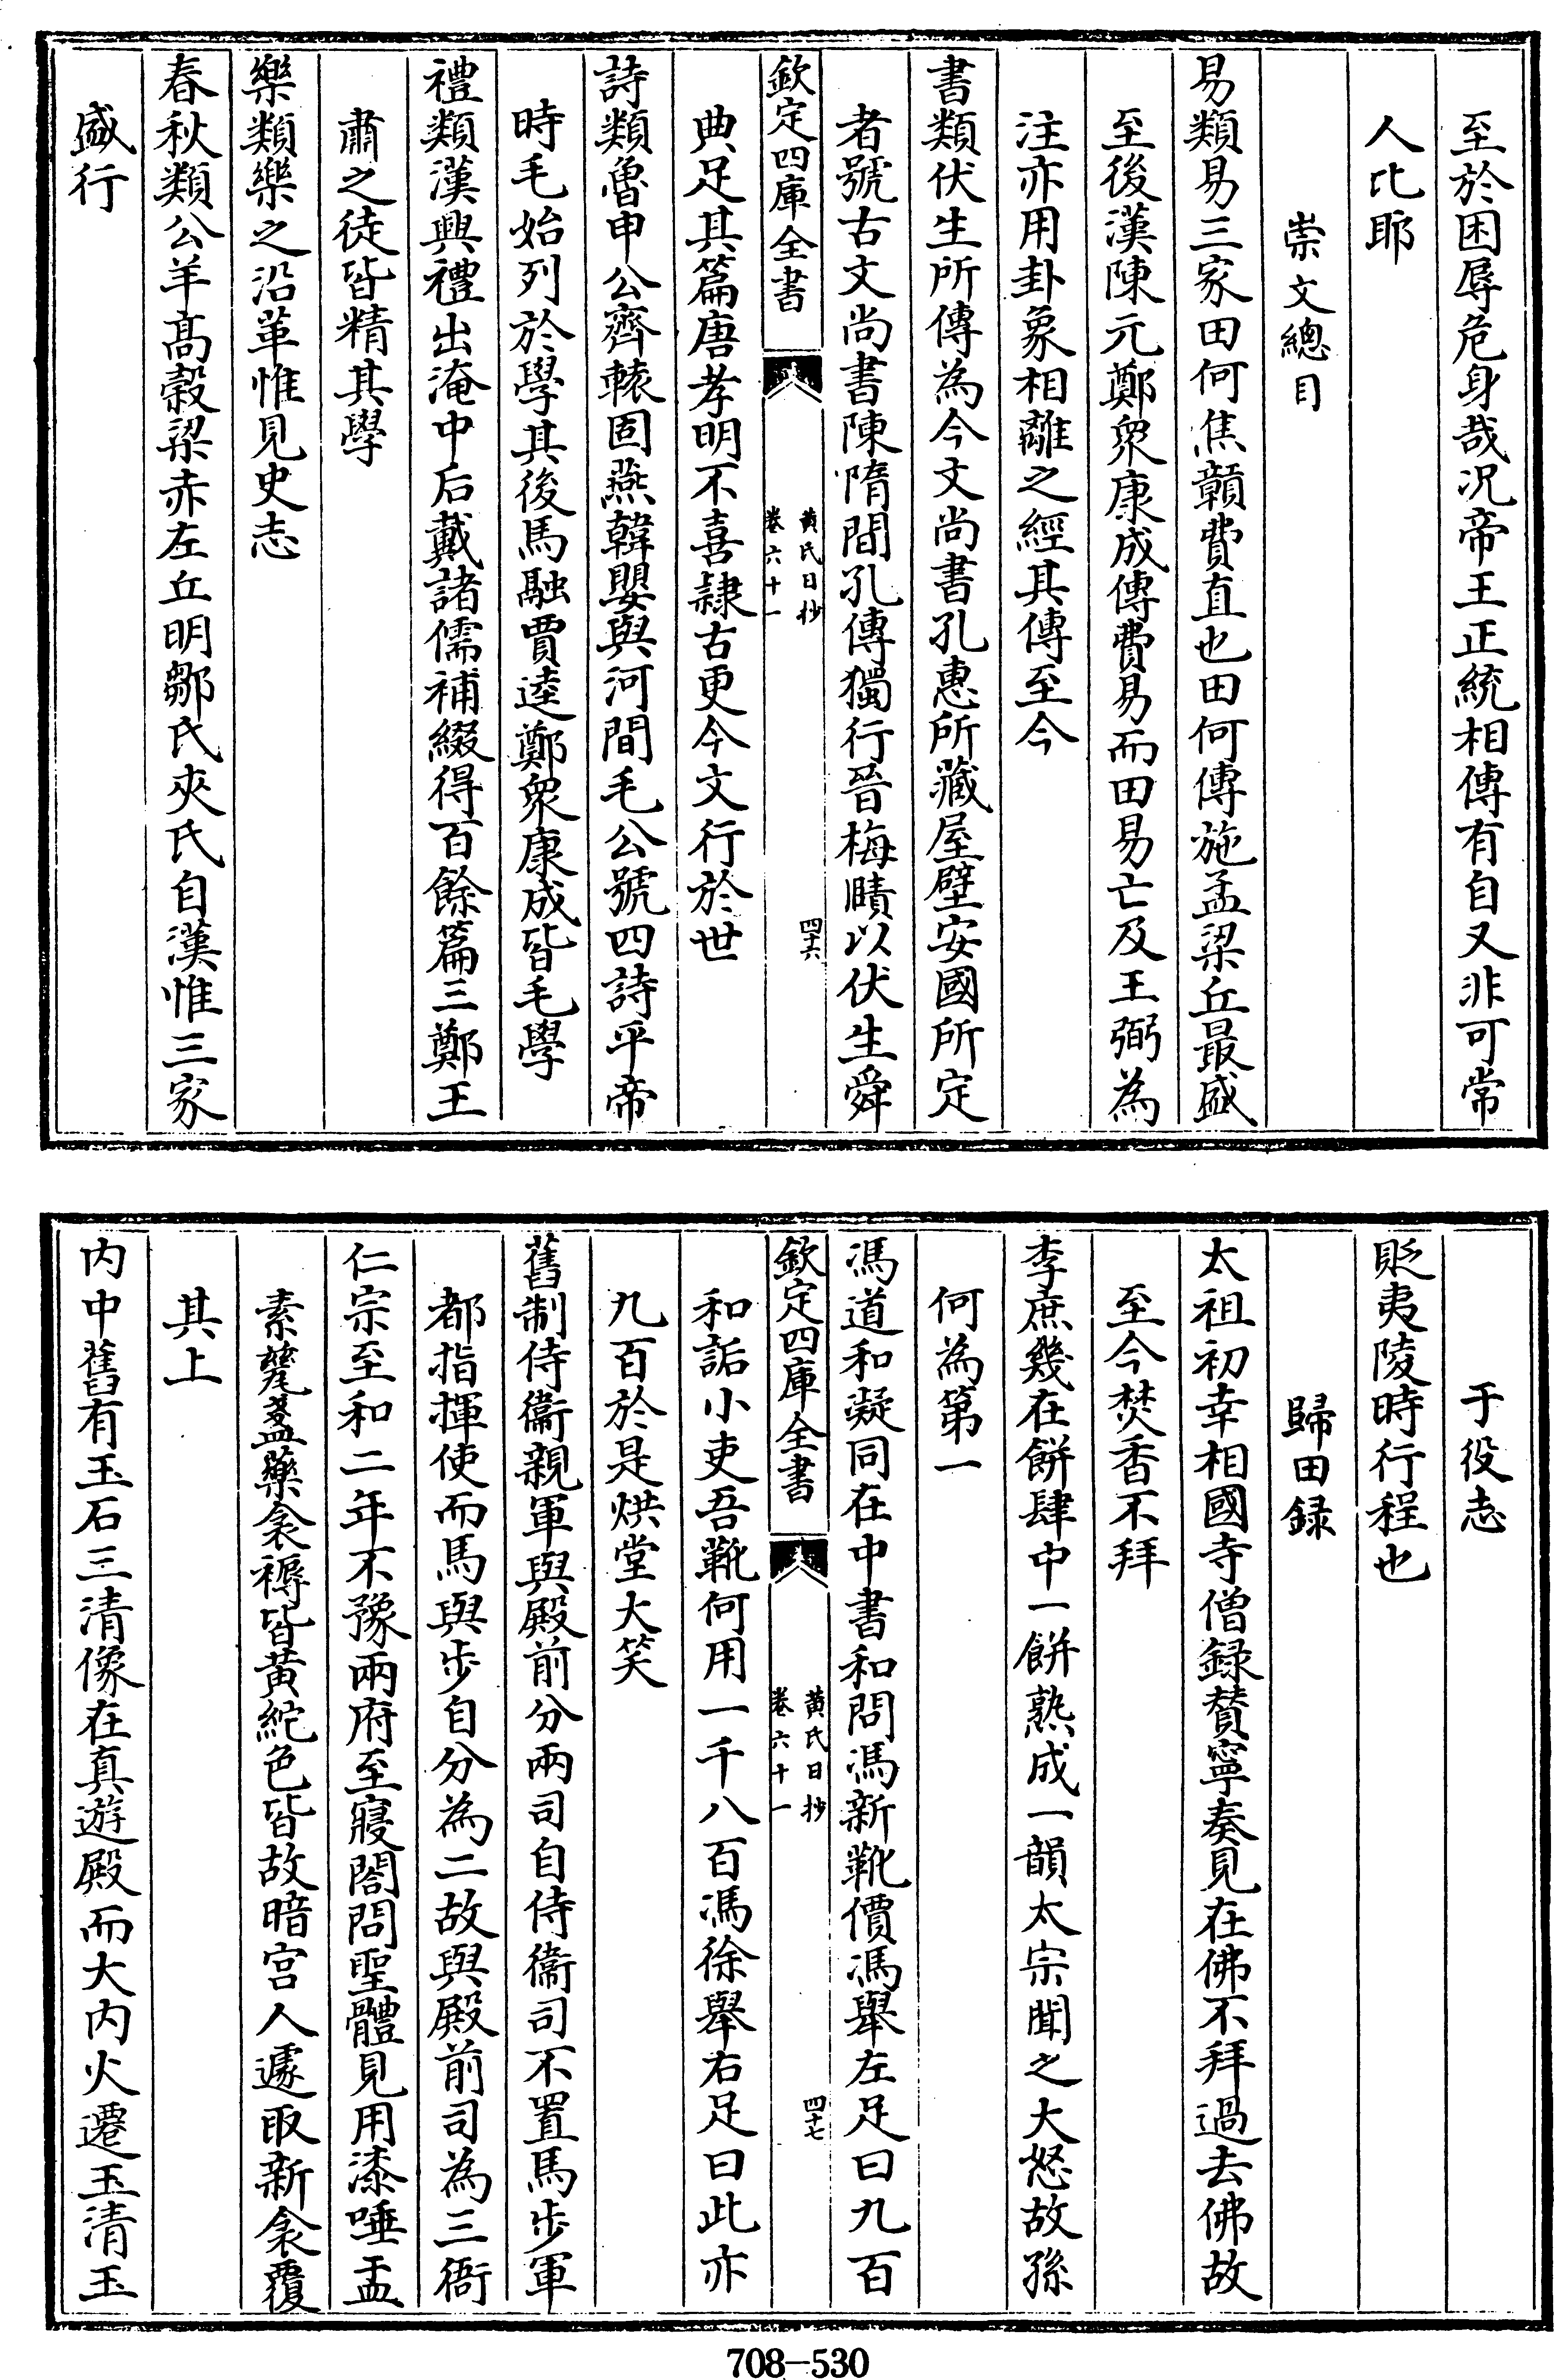 至於困辱危身哉况帝王正統相傳有自又非可常
人比耶
崇文總目
易類易三家田何焦贛費直也田何傳施孟梁丘最盛
至後漢陳元鄭衆康成傳費易而田易亡及王弼為
注亦用卦象相離之經其傳至今
書類伏生所傳為今文尚書孔惠所藏屋壁安國所定
者號古文尚書陳隋間孔傳獨行晉梅賾以伏生舜
欽定四庫全書
黄氏日抄
卷六十一
四十六
典足其篇唐孝明不喜隷古更今文行於世
詩類魯申公齊轅固燕韓嬰與河間毛公號四詩平帝
時毛始列於學其後馬融賈逵鄭衆康成皆毛學
禮類漢興禮出淹中后戴諸儒補綴得百餘篇三鄭王
肅之徒皆精其學
樂類樂之沿革惟見史志
春秋類公羊髙穀梁赤左丘明鄒氏夾氏自漢惟三家
盛行
于役志
貶夷陵時行程也
歸田録
太祖初幸相國寺僧録賛寧奏見在佛不拜過去佛故
至今焚香不拜
李庶幾在餅肆中一餅熟成一韻太宗聞之大怒故孫
何為第一
馮道和凝同在中書和問馮新靴價馮舉左足曰九百
欽定四庫全書
黄氏日抄
卷六十一
四十七
和詬小吏吾靴何用一千八百馮徐舉右足曰此亦
九百於是烘堂大笑
舊制侍衞親軍與殿前分兩司自侍衞司不置馬步軍
都指揮使而馬與步自分為二故與殿前司為三衙
仁宗至和二年不豫兩府至寢閤問聖體見用漆唾盂
素甆盞藥衾褥皆黄絁色皆故暗宫人遽取新衾覆
其上
内中舊有玉石三清像在真遊殿而大内火遷玉清玉
708-530